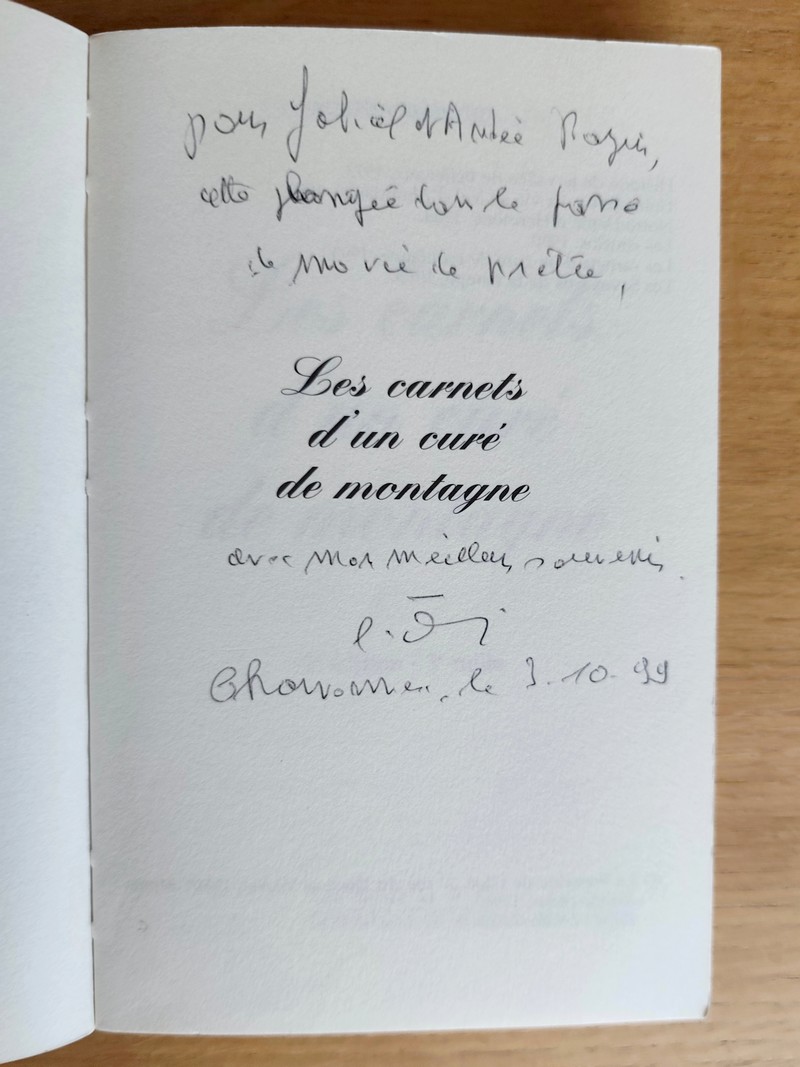 pour et André
cette plongée dans le passé
de ma vie de prêtre,
Les carnets
d'un curé
de montagne
avec mon meilleur souvenir.
le 3.10.99